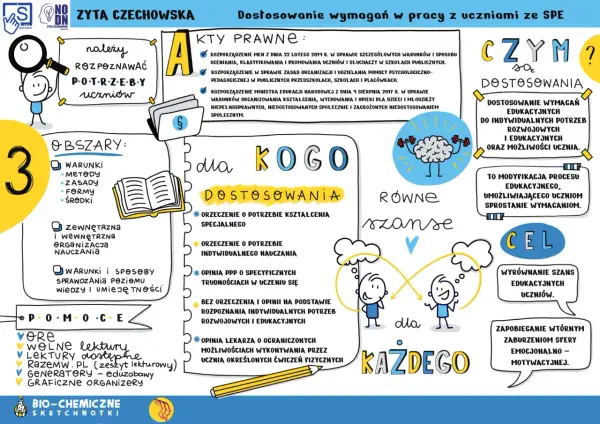 S
NO
DN
ZYTA CZECHOWSKA
Dostosowanie wymagań w pracy z uczniami ze SPE
należy
ROZPOZNAWAĆ
P·O·T·R·Z·E·B·Y
uczniów
AKTY PRAWNE:
ROZPORZĄDZENIE MEN Z DNIA 22 LUTEGO 2019 R. W SPRAWIE SZCZEGÓŁOWYCH WARUNKÓW I SPOSOBU
OCENIANIA, KLASYFIKOWANIA I PROMOWANIA UCZNIÓW I SŁUCHACZY W SZKOŁACH PUBLICZNYCH.
ROZPORZĄDZENIE W SPRAWIE ZASAD ORGANIZACJI I UDZIELANIA POMOCY PSYCHOLOGICZNO-
PEDAGOGICZNEJ W PUBLICZNYCH PRZEDSZKOLACH, SZKOŁACH I PLACÓWKACH.
ROZPORZĄDZENIE MINISTRA EDUKACJI NARODOWEJ Z DNIA 9 SIERPNIA 2017 R. W SPRAWIE
WARUNKÓW ORGANIZOWANIA KSZTAŁCENIA, WYCHOWANIA I OPIEKI DLA DZIECI I MŁODZIEŻY
NIEPEŁNOSPRAWNYCH, NIEDOSTOSOWANYCH SPOŁECZNIE I ZAGROŻONYCH NIEDOSTOSOWANIEM
SPOŁECZNYM.
§
CZYM
są
?
DOSTOSOWANIA
DOSTOSOWANIE WYMAGAŃ
EDUKACYJNYCH
DO INDYWIDUALNYCH POTRZEB
ROZWOJOWYCH
I EDUKACYJNYCH
ORAZ MOŻLIWOŚCI UCZNIA.
TO MODYFIKACJA PROCESU
EDUKACYJNEGO,
UMOŻLIWIAJĄCEGO UCZNIOM
SPROSTANIE WYMAGANIOM.
CEL
WYRÓWNANIE SZANS
EDUKACYJNYCH
UCZNIÓW.
ZAPOBIEGANIE WTÓRNYM
ZABURZENIOM SFERY
EMOCJONALNO –
MOTYWACYJNEJ.
3
OBSZARY:
WARUNKI
·METODY
·ZASADY
·FORMY
·ŚRODKI
ZEWNĘTRZNA
i WEWNĘTRZNA
ORGANIZACJA
NAUCZANIA
WARUNKI i SPOSOBY
SPRAWDZANIA POZIOMU
WIEDZY I UMIEJĘTNOŚCI
dla KOGO
DOSTOSOWANIA
ORZECZENIE O POTRZEBIE KSZTAŁCENIA
SPECJALNEGO
ORZECZENIE O POTRZEBIE
INDYWIDUALNEGO NAUCZANIA
OPINIA PPP O SPECYFICZNYCH
TRUDNOŚCIACH W UCZENIU SIĘ
BEZ ORZECZENIA I OPINII NA PODSTAWIE
ROZPOZNANIA INDYWIDUALNYCH POTRZEB
ROZWOJOWYCH I EDUKACYJNYCH
OPINIA LEKARZA O OGRANICZONYCH
MOŻLIWOŚCIACH WYKONYWANIA PRZEZ
UCZNIA OKREŚLONYCH ĆWICZEŃ FIZYCZNYCH
RÓWNE
szanse
dla
KAŻDEGO
P·O·M·O·C·E
ORE
WOLNE lektury
LEKTURY dostępne
RAZEMW.PL (zeszyt lekturowy)
GENERATORY – eduzabawy
GRAFICZNE ORGANIZERY
BIO-CHEMICZNE
SKETCHNOTKI